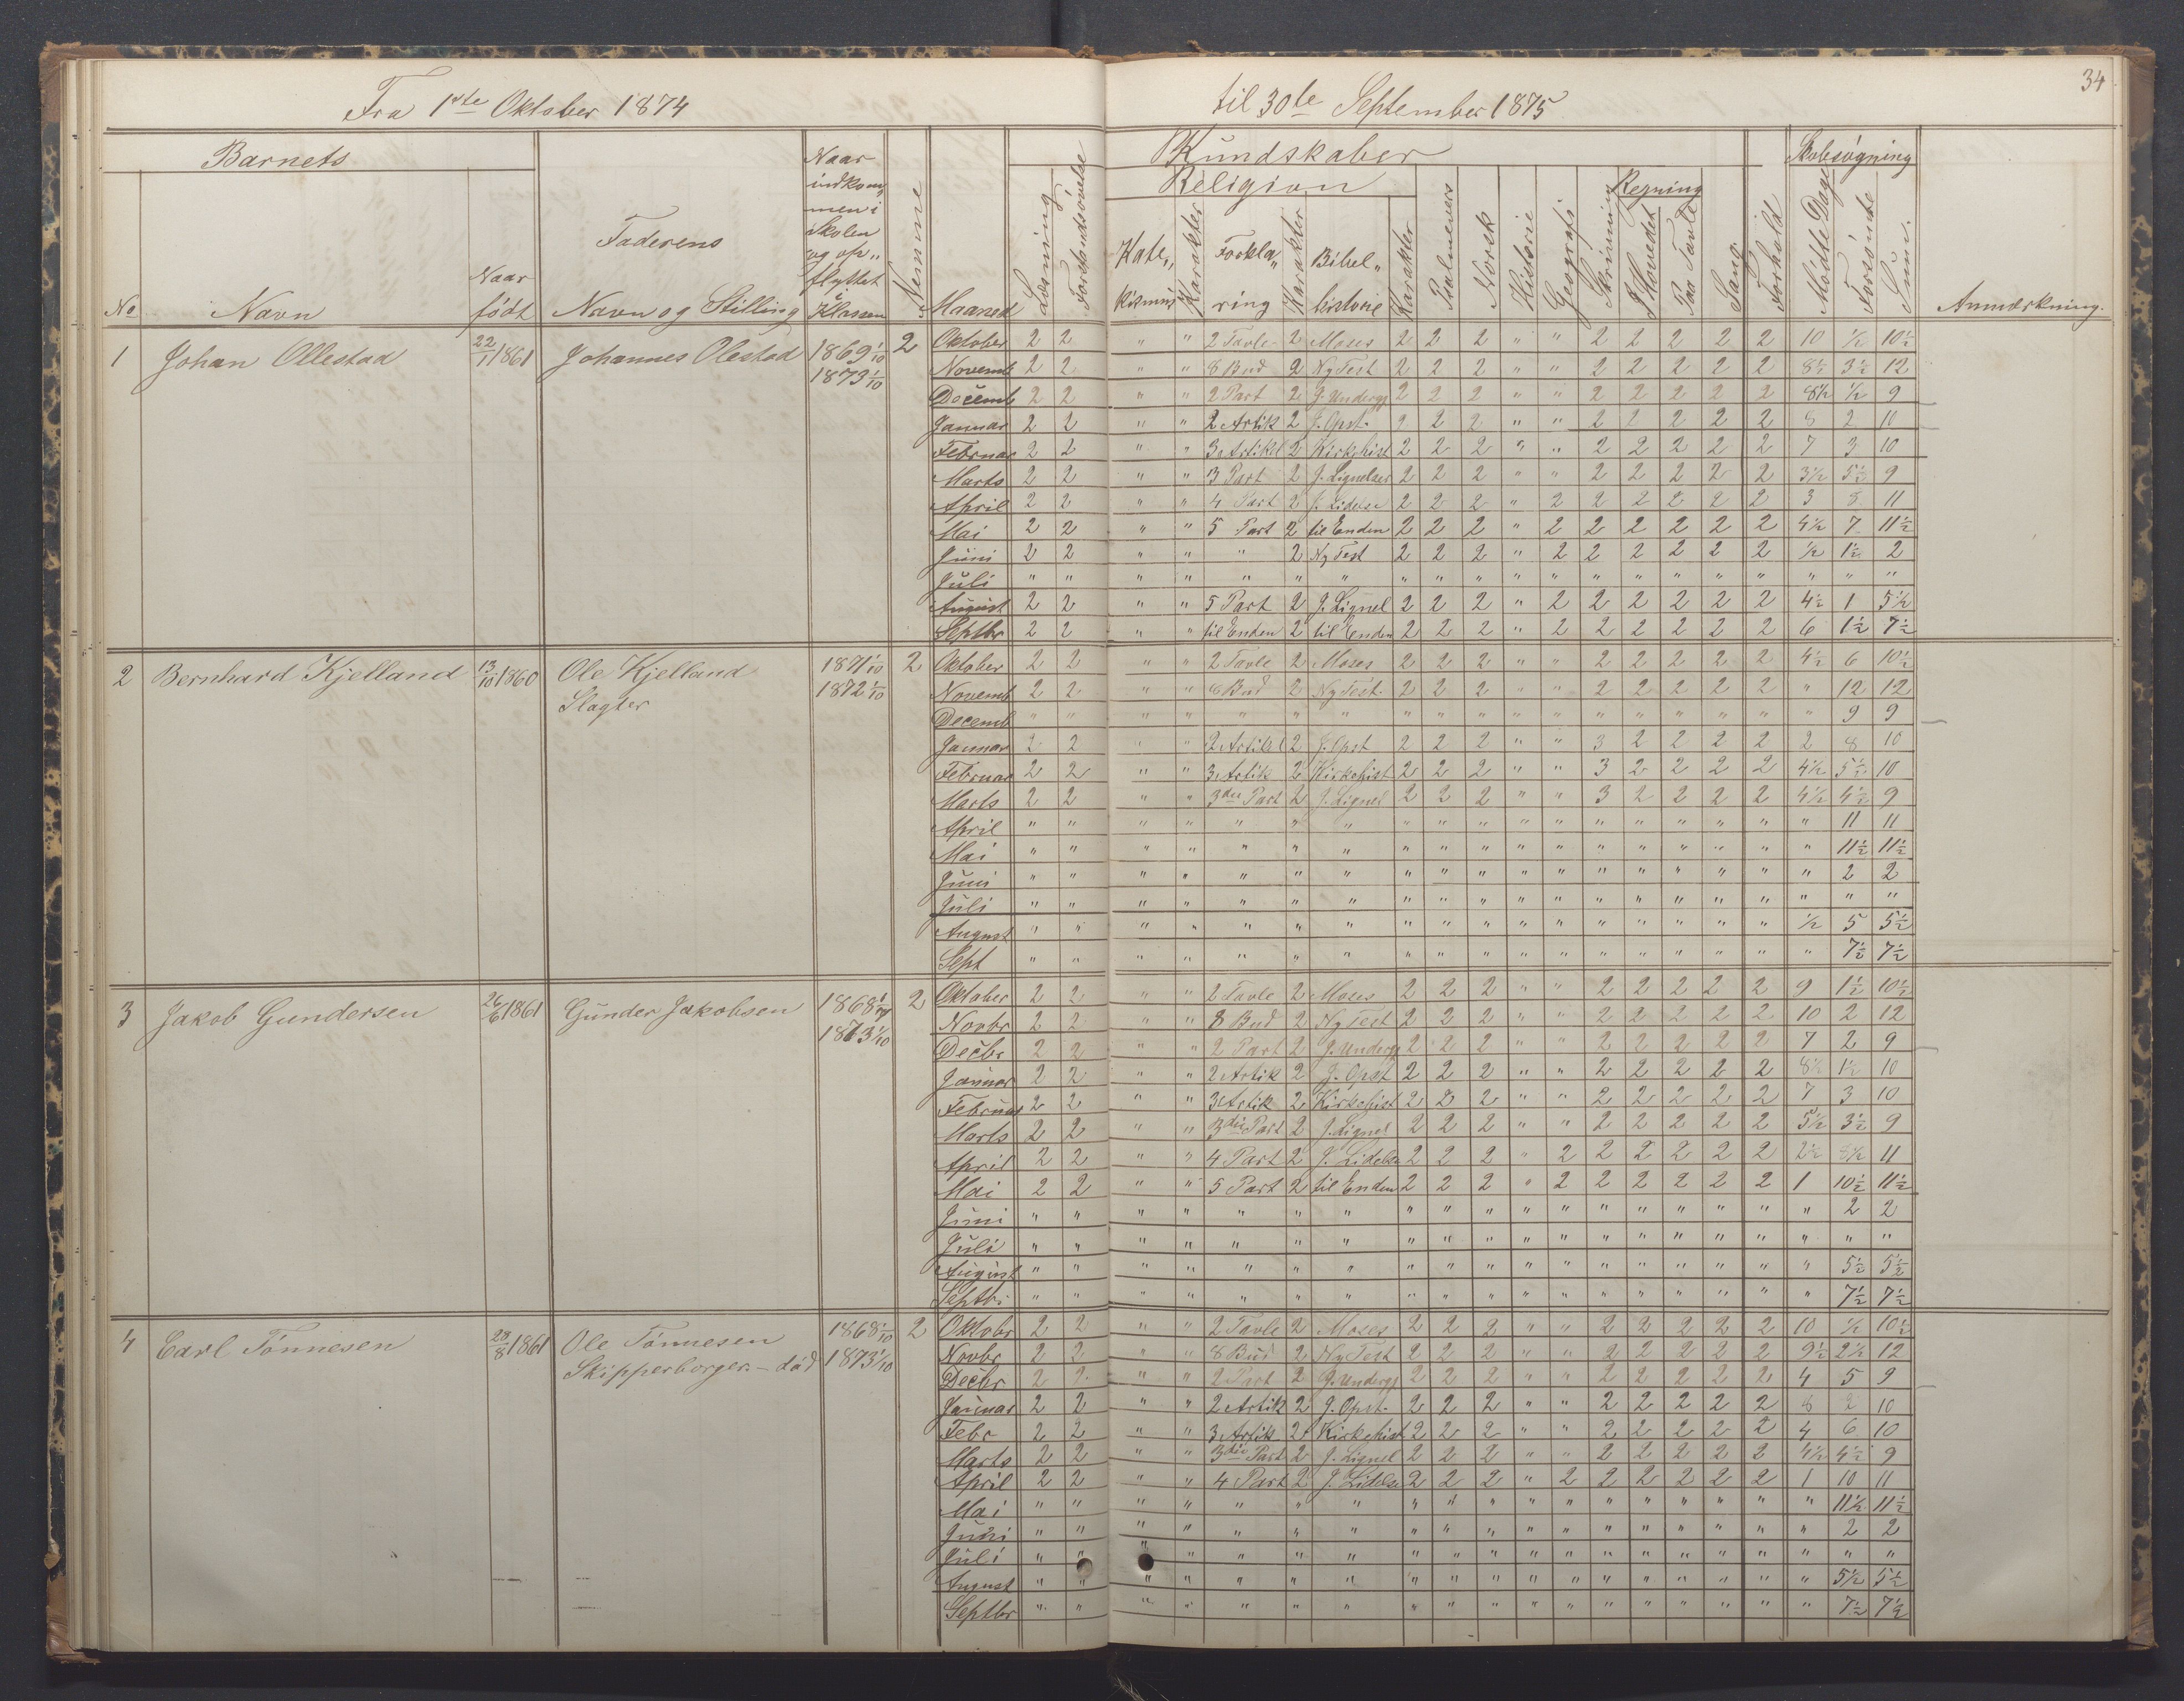 34
Fra 1ste Oktober 1874 til 30te September 1875
Barnets Kundskaber Skolesøgning
Religion Regning
No Navn Naar født Faderens Navn og Stilling Naar indkommen i Skolen og op„ flyttet i Klassen Nemme Maaned Læsning Forstandsøvelse Kate„ kismus Karakter Forkla„ ring Karakter Bibel„ historie Karakter Psalmevers Norsk Historie Geografi Skrivning I Hovedet Paa Tavle Sang Forhold Mødte Dage Forsømte Sum. Anmærkning.
1 Johan Ollestad 22/11 1861 Johannes Olestad 1869 1/10 1873 1/10 2
Oktober 2 2 " " 2 Tavle 2 Moses 2 2 2 " " 2 2 2 2 2 10 ½ 10½
Novemb 2 2 " " 8 Bud 2 Ny Test 2 2 2 " " 2 2 2 2 2 8½ 3½ 12
Decemb 2 2 " " 2 Part 2 J. Undergj 2 2 2 " " 2 2 2 2 2 8½ ½ 9
Januar 2 2 " " 2 Artik 2 J. Opst. 2 2 2 " " 2 2 2 2 2 8 2 10
Februar 2 2 " " 3 Artikl 2 Kirkehist 2 2 2 " " 2 2 2 2 2 7 3 10
Marts 2 2 " " 3 Part 2 J. Lignelser 2 2 2 " " 2 2 2 2 2 3½ 5½ 9
April 2 2 " " 4 Part 2 J. Lidelse 2 2 2 " 2 2 2 2 2 2 3 8 11
Mai 2 2 " " 5 Part 2 til Enden 2 2 2 " 2 2 2 2 2 2 4½ 7 11½
Juni 2 2 " " " 2 Ny Test 2 2 2 " 2 2 2 2 2 2 ½ 1½ 2
Juli " " " " " " " " " " " " " " " " " " " "
August 2 2 " " 5 Part 2 J. Lignel 2 2 2 " 2 2 2 2 2 2 4½ 1 5½
Septbr 2 2 " " til Enden 2 til Enden 2 2 2 " 2 2 2 2 2 2 6 1½ 7½
2 Bernhard Kjelland 13/10 1860 Ole Kjelland Slagter 1871 1/10 1872 1/10 2
Oktober 2 2 " " 2 Tavle 2 Moses 2 2 2 " " 2 2 2 2 2 4½ 6 10½
Novemb 2 2 " " 8 Bud 2 Ny Test. 2 2 2 " " 2 2 2 2 2 " 12 12
Decemb " " " " " " " " " " " " " " " " " " 9 9
Januar 2 2 " " 2 Artikl 2 J. Opst 2 2 2 " " 3 2 2 2 2 2 8 10
Februar 2 2 " " 3 Artik 2 Kirkehist 2 2 2 " " 3 2 2 2 2 4½ 5½ 10
Marts 2 2 " " 3die Part 2 J. Lignel 2 2 2 " " 3 2 2 2 2 4½ 4½ 9
April " " " " " " " " " " " " " " " " " " 11 11
Mai " " " " " " " " " " " " " " " " " " 11½ 11½
Juni " " " " " " " " " " " " " " " " " " 2 2
Juli " " " " " " " " " " " " " " " " " " " "
August " " " " " " " " " " " " " " " " " ½ 5 5½
Sept " " " " " " " " " " " " " " " " " " 7½ 7½
3 Jakob Gundersen 26/6 1861 Gunder Jakobsen 1868 1873 1/10 2
Oktober 2 2 " " 2 Tavle 2 Moses 2 2 2 " " 2 2 2 2 2 9 1½ 10½
Novbr 2 2 " " 8 Bud 2 Ny Test 2 2 2 " " 2 2 2 2 2 10 2 12
Decbr 2 2 " " 2 Part 2 J. Undergj 2 2 2 " " 2 2 2 2 2 7 2 9
Januar 2 2 " " 2 Artik 2 J. Opst 2 2 2 " " 2 2 2 2 2 8½ 1½ 10
Februar 2 2 " " 3 Artik 2 Kirkehist 2 2 2 " " 2 2 2 2 2 7 3 10
Marts 2 2 " " 3die Part 2 J. Lignel 2 2 2 " " 2 2 2 2 2 5½ 3½ 9
April 2 2 " " 4 Part 2 J. Lidelse 2 2 2 " 2 2 2 2 2 2 2½ 8½ 11
Mai 2 2 " " 5 Part 2 til Enden 2 2 2 " 2 2 2 2 2 2 1 10½ 11½
Juni " " " " " " " " " " " " " " " " " " 2 2
Juli " " " " " " " " " " " " " " " " " " " "
August " " " " " " " " " " " " " " " " " " 5½ 5½
Septbr " " " " " " " " " " " " " " " " " " 7½ 7½
4 Carl Tönnesen 28/8 1861 Ole Tönnesen Skipperborger - död 1868 1/10 1873 1/10 2
Oktobr 2 2 " " 2 Tavle 2 Moses 2 2 2 " " 2 2 2 2 2 10 ½ 10½
Novbr 2 2 " " 8 Bud 2 Ny Test 2 2 2 " " 2 2 2 2 2 9½ 2½ 12
Decbr 2 2 " " 2 Part 2 J. Undergj 2 2 2 " " 2 2 2 2 2 4 5 9
Januar 2 2 " " 2 Artik 2 J. Opst. 2 2 2 " " 2 2 2 2 2 8 2 10
Febr 2 2 " " 3 Artik 2 Kirkehist 2 2 2 " " 2 2 2 2 2 4 6 10
Marts 2 2 " " 3die Part 2 J. Lignel 2 2 2 " " 2 2 2 2 2 4½ 4½ 9
April 2 2 " " 4 Part 2 J. Lidelse 2 2 2 " 2 2 2 2 2 2 1 10 11
Mai " " " " " " " " " " " " " " " " " " 11½ 11½
Juni " " " " " " " " " " " " " " " " " " 2 2
Juli " " " " " " " " " " " " " " " " " " " "
August " " " " " " " " " " " " " " " " " " 5½ 5½
Septbr " " " " " " " " " " " " " " " " " " 7½ 7½